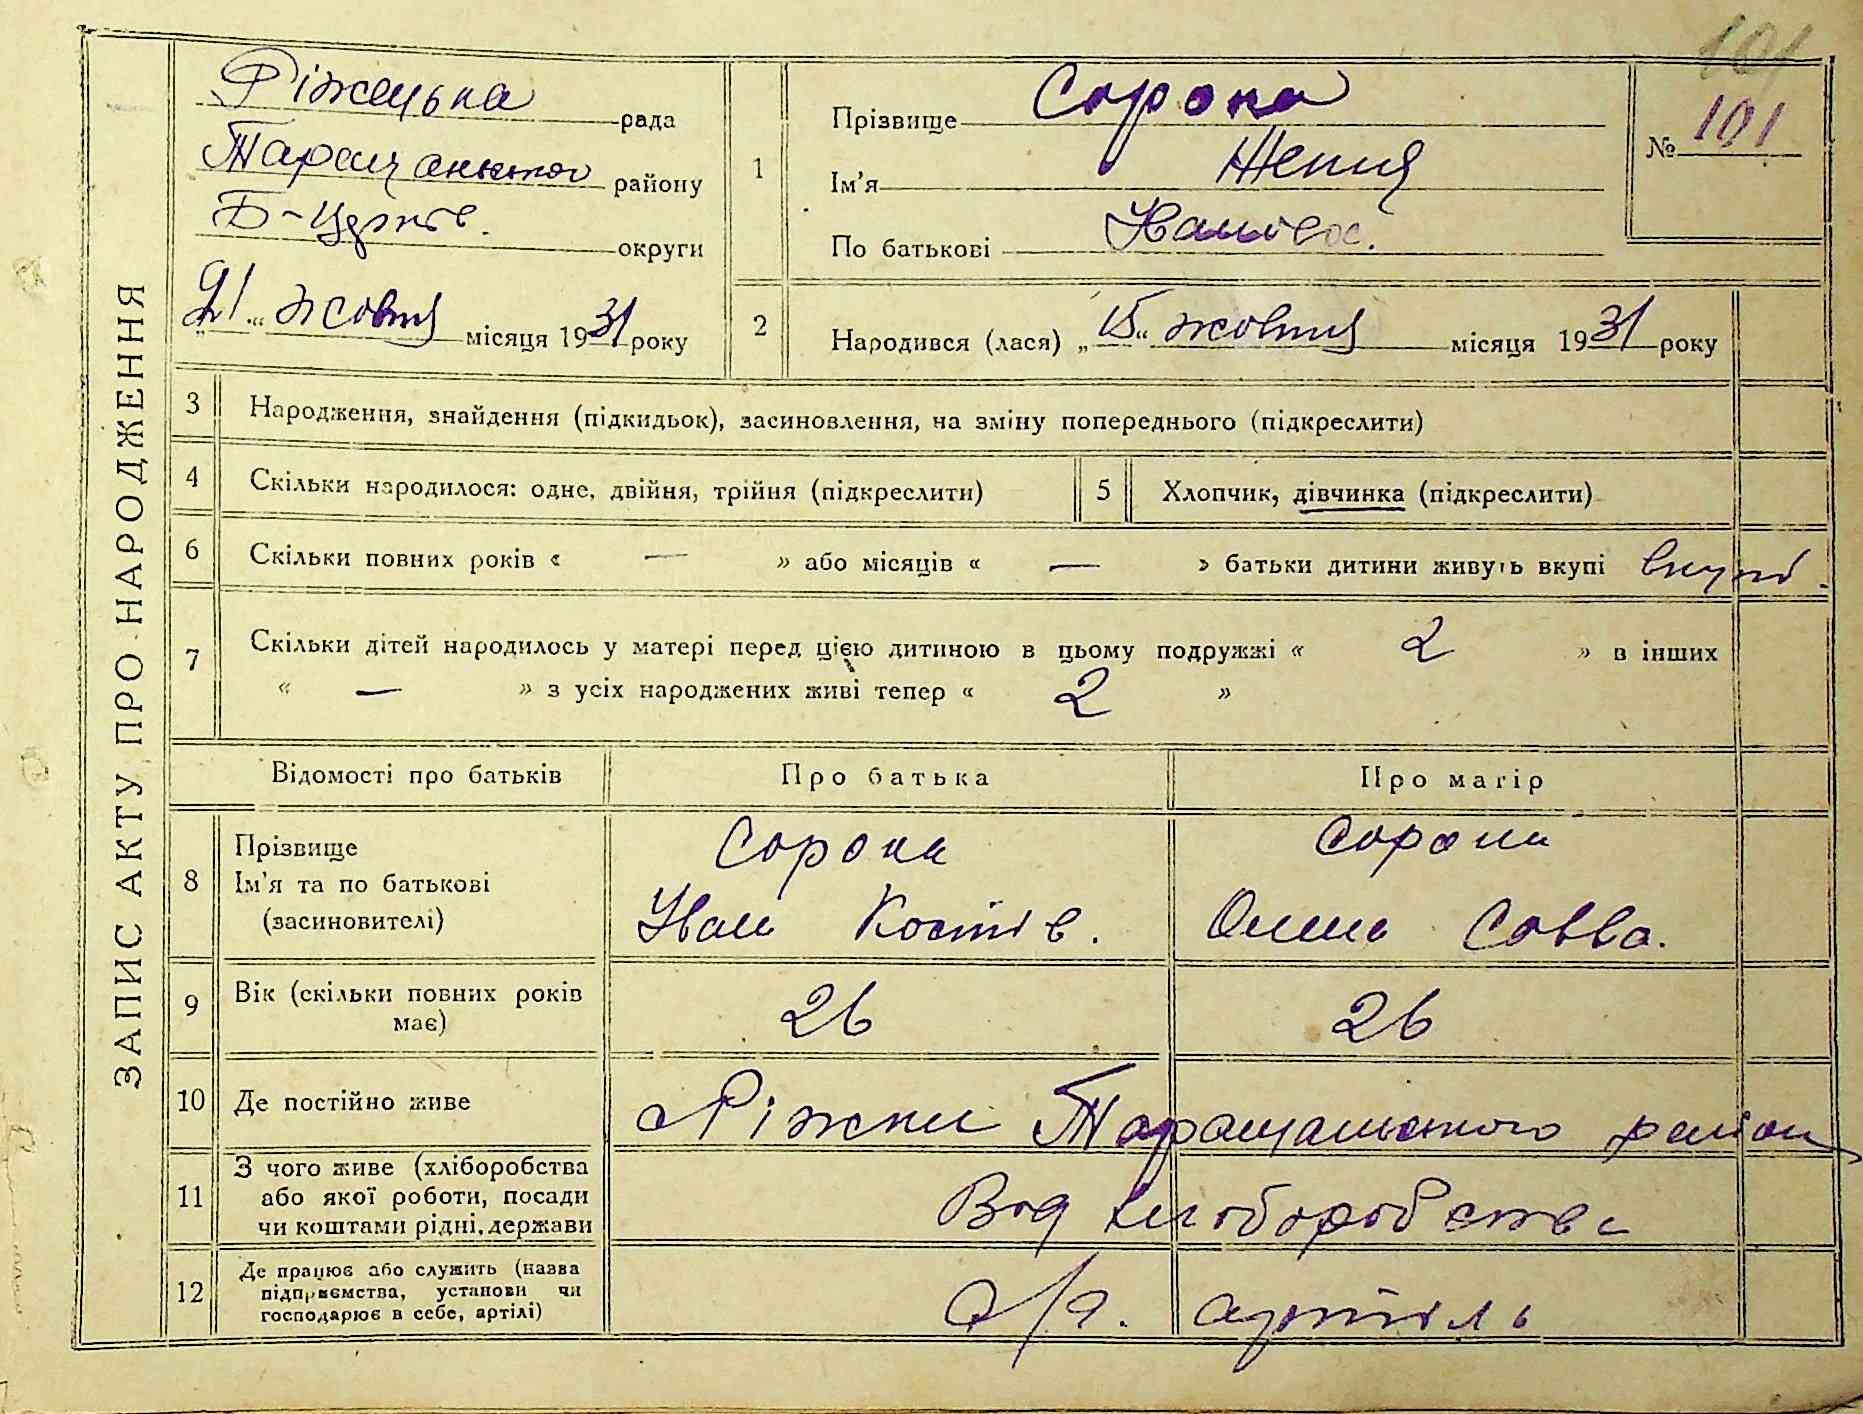 ЗАПИС АКТУ ПРО НАРОДЖЕННЯ
101
Ріжецька рада
Таращанського району
Б-Церків. округи
"21" жовтня місяця 1931 року
1
Прізвище Сорока
Ім'я Женя
По батькові
№ 101
2
Народився (лася) „15“ жовтня місяця 1931 року
3 Народження, знайдення (підкидьок), засиновлення, на зміну попереднього (підкреслити)
4 Скільки народилося: одне, двійня, трійня (підкреслити)
5 Хлопчик, дівчинка (підкреслити)
6 Скільки повних років « — » або місяців « — » батьки дитини живуть вкупі вкупі.
7 Скільки дітей народилось у матері перед цією дитиною в цьому подружжі « 2 » в інших
« — » з усіх народжених живі тепер « 2 »
Відомості про батьків Про батька Про матір
8 Прізвище Сорока Сорока
Ім'я та по батькові Іван Костів. Савва.
(засиновителі)
9 Вік (скільки повних років має) 26 26
10 Де постійно живе с Ріжки Таращанського району
11 З чого живе (хліборобства або якої роботи, посади чи коштами рідні, держави Від хліборобства
12 Де працює або служить (назва підприємства, установи чи господарює в себе, артілі) с/г. артіль